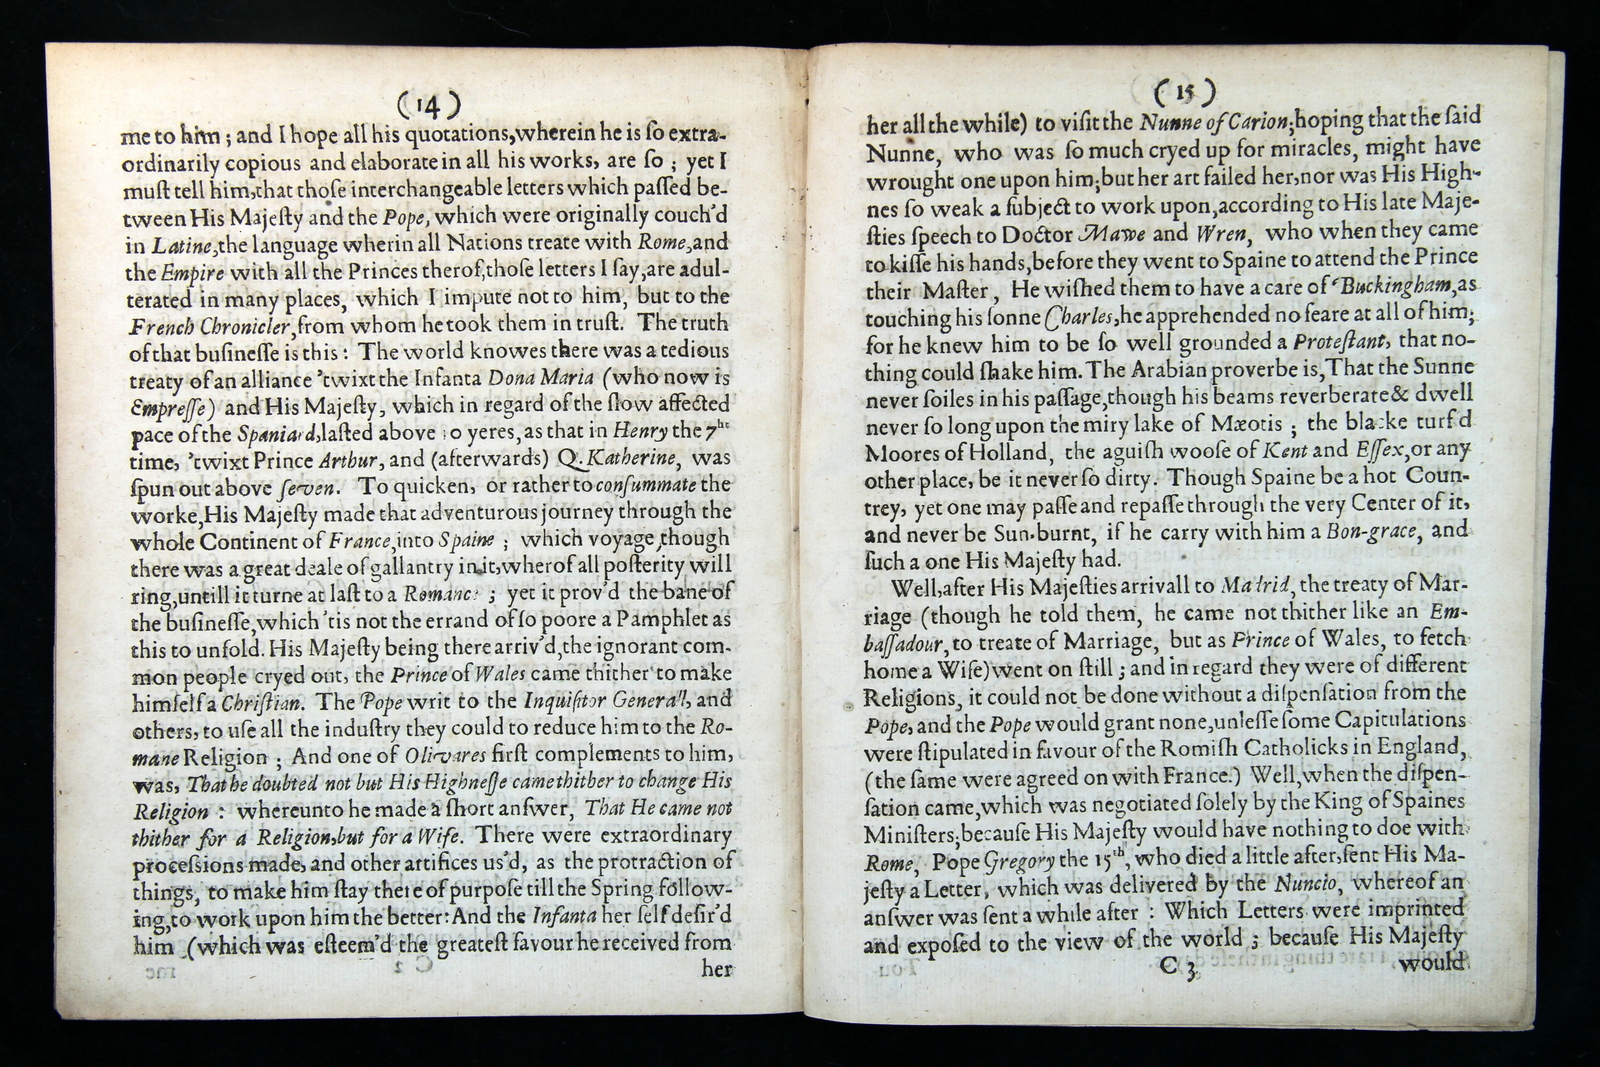 (14)
me to him ; and I hope all his quotations,wherein he is ſo extra-
ordinarily copious and elaborate in all his works, are ſo ; yet I
muſt tell him,that thoſe interchangeable letters which paſſed be-
tween His Majeſty and the Pope, which were originally couch'd
in Latine,the language wherin all Nations treate with Rome,and
the Empire with all the Princes therof,thoſe letters I ſay,are adul-
terated in many places, which I impute not to him, but to the
French Chronicler,from whom he took them in truſt. The truth
of that buſineſſe is this : The world knowes there was a tedious
treaty of an alliance 'twixt the Infanta Dona Maria (who now is
Empreſſe) and His Majeſty, which in regard of the ſlow affected
pace of the Spaniard,laſted above 10 yeres, as that in Henry the 7ht
time, 'twixt Prince Arthur, and (afterwards) Q. Katherine, was
ſpun out above ſeven. To quicken, or rather to conſummate the
worke,His Majeſty made that adventurous journey through the
whole Continent of France,into Spaine ; which voyage,though
there was a great deale of gallantry in it,wherof all poſterity will
ring,untill it turne at laſt to a Romance ; yet it prov'd the bane of
the buſineſſe,which 'tis not the errand of ſo poore a Pamphlet as
this to unfold. His Majeſty being there arriv'd,the ignorant com-
mon people cryed out, the Prince of Wales came thither to make
himſelf a Chriſtian. The Pope writ to the Inquiſitor Generall, and
others, to uſe all the induſtry they could to reduce him to the Ro-
mane Religion ; And one of Olivares firſt complements to him,
was, That he doubted not but His Highneſſe came thither to change His
Religion : whereunto he made a ſhort anſwer, That He came not
thither for a Religion,but for a Wife. There were extraordinary
proceſsions made, and other artifices us'd, as the protraction of
things, to make him ſtay there of purpoſe till the Spring follow-
ing,to work upon him the better:And the Infanta her ſelf deſir'd
him (which was eſteem'd the greateſt favour he received from
her
(15)
her all the while) to viſit the Nunne of Carion;hoping that the ſaid
Nunne, who was ſo much cryed up for miracles, might have
wrought one upon him;but her art failed her,nor was His High-
nes ſo weak a ſubject to work upon,according to His late Maje-
ſties ſpeech to Doctor Mawe and Wren, who when they came
to kiſſe his hands,before they went to Spaine to attend the Prince
their Maſter , He wiſhed them to have a care of Buckingham,as
touching his ſonne Charles,he apprehended no feare at all of him;
for he knew him to be ſo well grounded a Proteſtant, that no-
thing could ſhake him. The Arabian proverbe is,That the Sunne
never ſoiles in his paſſage,though his beams reverberate& dwell
never ſo long upon the miry lake of Mæotis ; the blacke turf'd
Moores of Holland, the aguiſh wooſe of Kent and Eſſex,or any
other place, be it never ſo dirty. Though Spaine be a hot Coun-
trey, yet one may paſſe and repaſſe through the very Center of it,
and never be Sun-burnt, if he carry with him a Bon-grace, and
ſuch a one His Majeſty had.
Well,after His Majeſties arrivall to Madrid, the treaty of Mar-
riage (though he told them, he came not thither like an Em-
baſſadour,to treate of Marriage, but as Prince of Wales, to fetch
home a Wife)went on ſtill ; and in regard they were of different
Religions, it could not be done without a diſpenſation from the
Pope, and the Pope would grant none,unleſſe ſome Capitulations
were ſtipulated in favour of the Romiſh Catholicks in England,
(the ſame were agreed on with France.) Well,when the diſpen-
ſation came,which was negotiated ſolely by the King of Spaines
Miniſters,becauſe His Majeſty would have nothing to doe with
Rome, Pope Gregory the 15th, who died a little after,ſent His Ma-
jeſty a Letter, which was delivered by the Nuncio, whereof an
anſwer was ſent a while after : Which Letters were imprinted
and expoſed to the view of the world ; becauſe His Majeſty
C 3 would